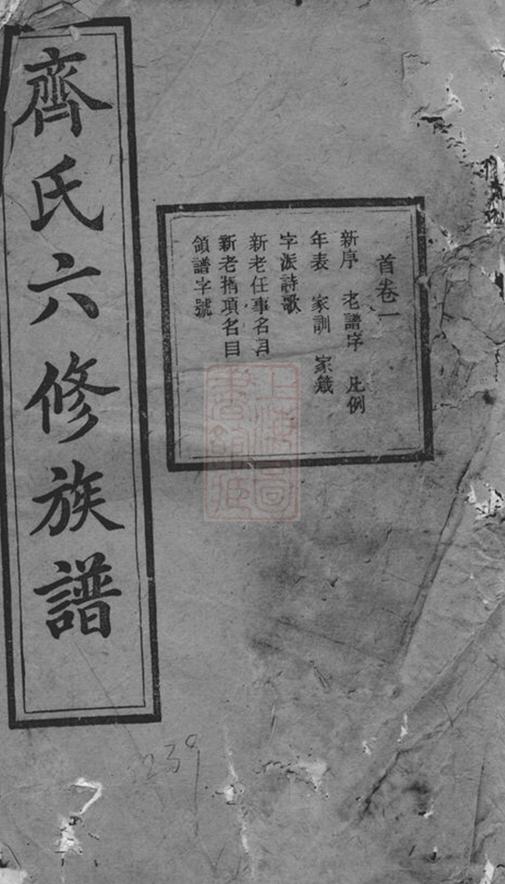 齊氏六修族譜
首卷一
新序 老譜序 凡例
年表 家訓 家箴
字派詩歌
新老任事名目
新老捐項名目
領譜字號
上海圖書館藏
239